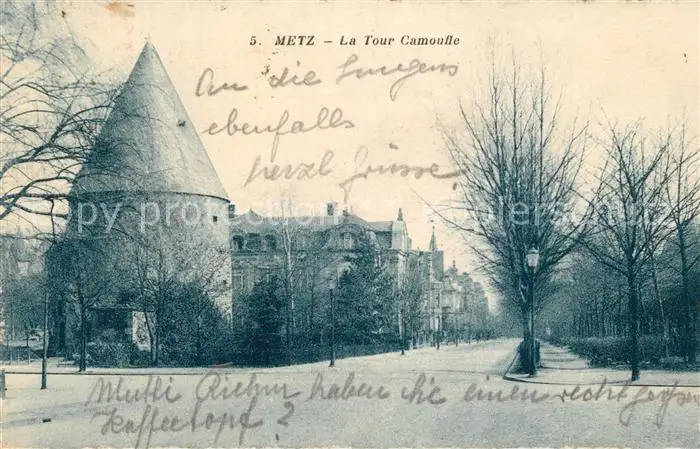 5. METZ – La Tour Camoufle
An die Jungens
ebenfalls
herzl. Grüsse
Copyright
Mutti Riehm haben Sie einen recht
Kaffeetopf?